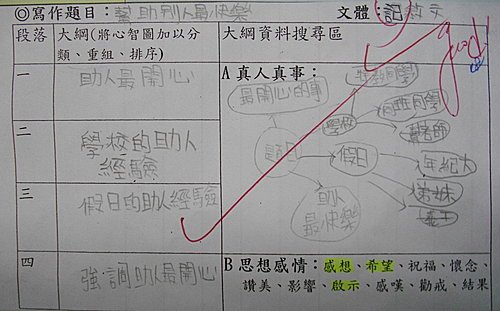 ◎寫作題目：幫助別人最快樂
文體：記敘文
段落
大綱(將心智圖加以分類、重組、排序)
大綱資料搜尋區
一
助人最開心
二
學校的助人
經驗
三
假日的助人經驗
四
強調助人最開心
A 真人真事：
最開心的事
題目
學校
同班同學
假日
年紀大
弟妹
助人
最快樂
good
B 思想感情：感想、希望、祝福、懷念、
讚美、影響、啟示、感嘆、勸戒、結果